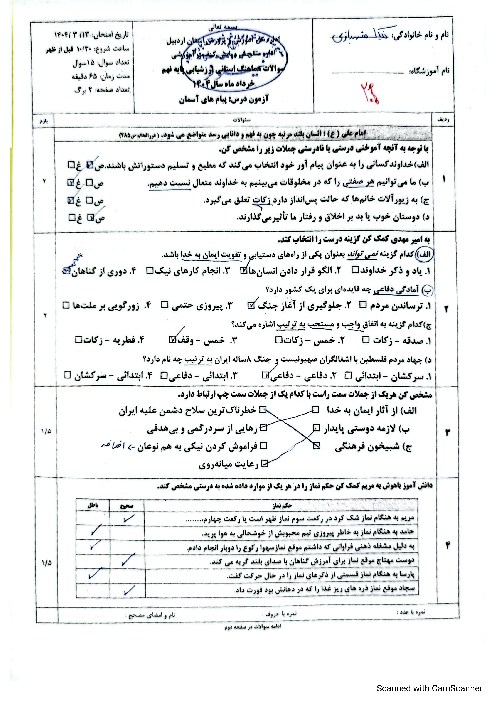 بسمه تعالی
نام و نام خانوادگی:
نام آموزشگاه:
سوالات هماهنگ استانی ارزشیابی پایه نهم
خرداد ماه سال ۱۴۰۴
آزمون درس: پیام های آسمان
تاریخ امتحان: ۱۴۰۴/۳/۱۳
ساعت شروع: ۱۰/۳۰ قبل از ظهر
تعداد سوال: ۱۵ سوال
مدت زمان: ۶۵ دقیقه
تعداد صفحه: ۲ برگ
ردیف
سئوالات
بارم
امام علی (ع): انسان بلند مرتبه چون به فهم و دانایی رسد متواضع می شود.
۱
با توجه به آنچه آموختی درستی یا نادرستی جملات زیر را مشخص کن.
الف) خداوند کسانی را به عنوان پیام آور خود انتخاب می‌کند که مطیع و تسلیم دستوراتش باشند. ص☐ غ☐
ب) ما می‌توانیم هر صفتی را که در مخلوقات می‌بینیم به خداوند متعال نسبت دهیم. ص☐ غ☐
ج) به زیورآلات خانم‌ها که حالت پس‌انداز دارد زکات تعلق می‌گیرد. ص☐ غ☐
د) دوستان خوب یا بد بر اخلاق و رفتار ما تأثیر می‌گذارند. ص☐ غ☐
۲
۲
به امیر مهدی کمک کن گزینه درست را انتخاب کند.
الف) کدام گزینه نمی تواند بعنوان یکی از راه‌های دستیابی و تقویت ایمان به خدا باشد.
۱. یاد و ذکر خداوند☐ ۲. الگو قرار دادن انسان‌ها☐ ۳. انجام کارهای نیک☐ ۴. دوری از گناهان☐
ب) آمادگی دفاعی چه فایده‌ای برای یک کشور دارد؟
۱. ترساندن مردم ☐ ۲. جلوگیری از آغاز جنگ☐ ۳. پیروزی حتمی ☐ ۴. زورگویی بر ملت‌ها ☐
ج) کدام گزینه به انفاق واجب و مستحب به ترتیب اشاره می‌کند؟
۱. صدقه - زکات ☐ ۲. خمس - زکات☐ ۳. خمس - وقف☐ ۴. فطریه - زکات☐
د) جهاد مردم فلسطین با اشغالگران صهیونیست و جنگ ۸ساله ایران به ترتیب چه نام دارد؟
۱. سرکشان - ابتدائی ☐ ۲. دفاعی - دفاعی☐ ۳. ابتدائی - دفاعی☐ ۴. ابتدائی - سرکشان ☐
۲
۳
مشخص کن هر یک از جملات سمت راست با کدام یک از جملات سمت چپ ارتباط دارد.
الف) از آثار ایمان به خدا ☐ ☐ خطرناک‌ترین سلاح دشمن علیه ایران
ب) لازمه دوستی پایدار ☐ ☐ رهایی از سردرگمی و بی‌هدفی
ج) شبیخون فرهنگی ☐ ☐ فراموش کردن نیکی به هم نوعان
☐ رعایت میانه‌روی
۱/۵
۴
دانش آموز باهوش به مریم کمک کن حکم نماز را در هر یک از موارد داده شده به درستی مشخص کند.
حکم نماز صحیح باطل
مریم به هنگام نماز شک کرد در رکعت سوم نماز ظهر است یا رکعت چهارم........
حامد به هنگام نماز به خاطر پیروزی تیم محبوبش از خوشحالی به هوا پرید.
به دلیل مشغله ذهنی فراوانی که داشتم موقع نماز سهوا رکوع را دوبار انجام دادم.
دوست مهتاج موقع نماز برای آمرزش گناهان با صدای بلند گریه می کند.
پارسا به هنگام نماز قسمتی از ذکرهای نماز را در حال حرکت گفت.
سجاد موقع نماز ذره های ریز غذا را که در دهانش بود قورت داد.
۱/۵
نمره با عدد:
نمره با حروف
نام و امضای مصحح
ادامه سوالات در صفحه دوم
Scanned with CamScanner